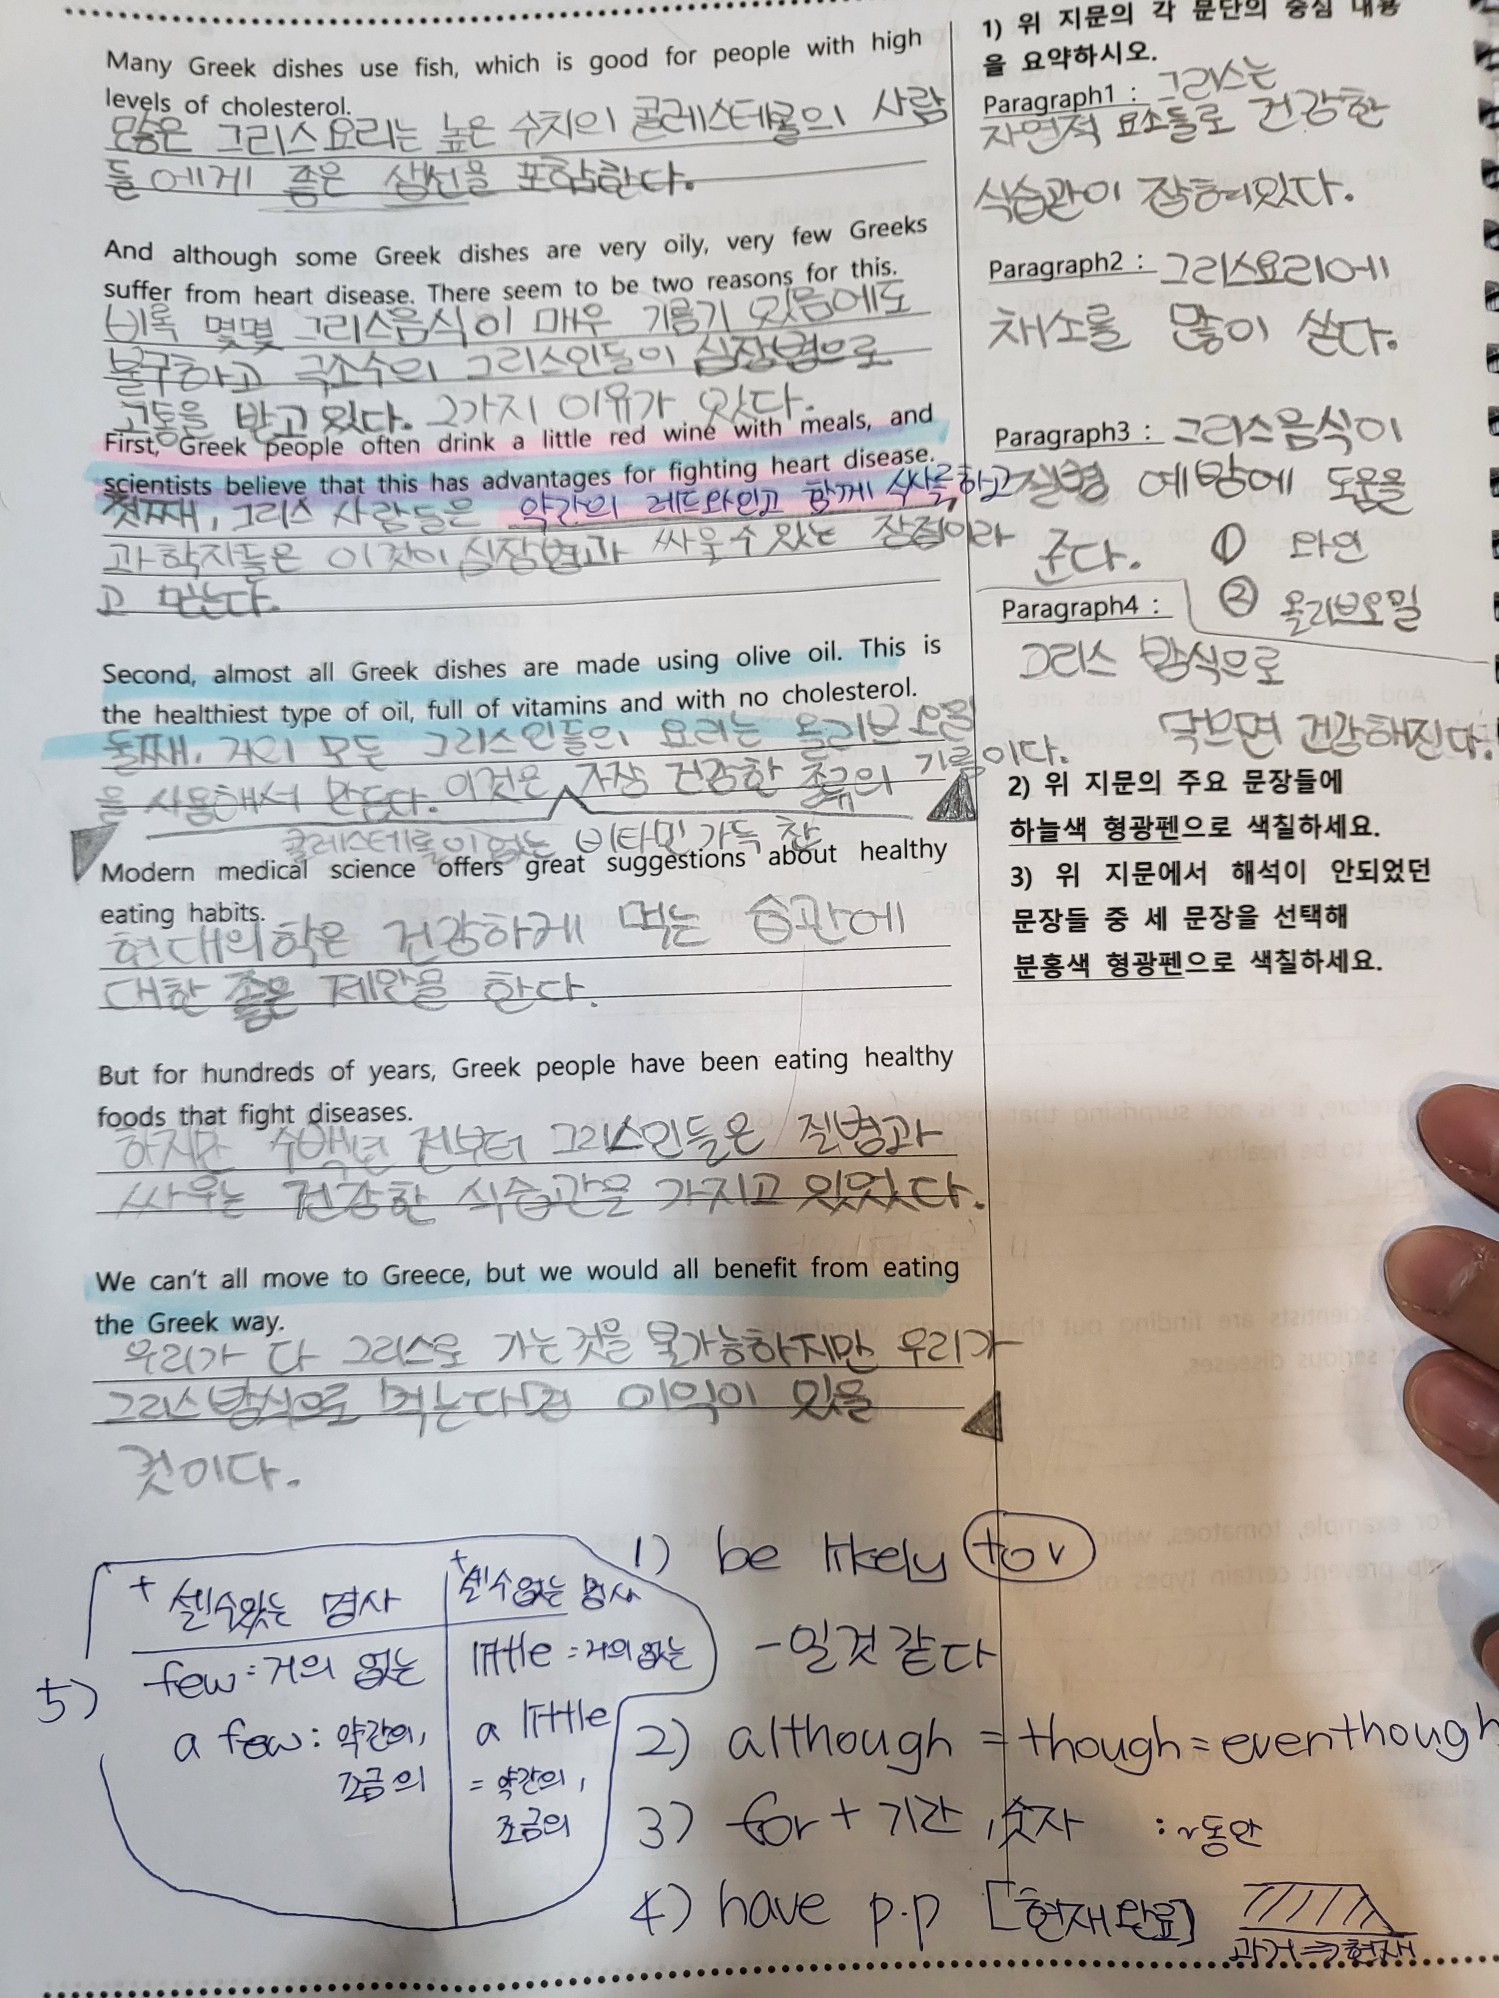 Many Greek dishes use fish, which is good for people with high
levels of cholesterol.
많은 그리스 요리는 높은 수치의 콜레스테롤의 사람
들에게 좋은 생선을 포함한다.
And although some Greek dishes are very oily, very few Greeks
suffer from heart disease. There seem to be two reasons for this.
비록 몇몇 그리스음식이 매우 기름기 있음에도
불구하고 극소수의 그리스인들이 심장병으로
고통을 받고 있다. 2가지 이유가 있다.
First, Greek people often drink a little red wine with meals, and
scientists believe that this has advantages for fighting heart disease.
첫째, 그리스 사람들은 약간의 레드와인고 함께 식사를하고
과학자들은 이것이 심장병과 싸울수 있는 장점이라
고 믿는다.
Second, almost all Greek dishes are made using olive oil. This is
the healthiest type of oil, full of vitamins and with no cholesterol.
둘째, 거의 모든 그리스인들의 요리는 올리브오일
을 사용해서 만든다. 이것은 가장 건강한 종류의 기름이다.
콜레스테롤이없는 비타민 가득 찬
Modern medical science offers great suggestions about healthy
eating habits.
현대의학은 건강하게 먹는 습관에
대한 좋은 제안을 한다.
But for hundreds of years, Greek people have been eating healthy
foods that fight diseases.
하지만 수백년 전부터 그리스인들은 질병과
싸우는 건강한 식습관을 가지고 있었다.
We can't all move to Greece, but we would all benefit from eating
the Greek way.
우리가 다 그리스로 가는것을 불가능하지만 우리가
그리스방식으로 먹는다면 이익이 있을
것이다.
1) 위 지문의 각 문단의 중심 내용
을 요약하시오.
Paragraph1 : 그리스는
자연적 요소들로 건강한
식습관이 잡혀있다.
Paragraph2 : 그리스요리에
채소를 많이 쓴다.
Paragraph3 : 그리스음식이
질병 예방에 도움을
준다. ① 와인
② 올리브오일
Paragraph4 :
그리스 방식으로
먹으면 건강해진다.
2) 위 지문의 주요 문장들에
하늘색 형광펜으로 색칠하세요.
3) 위 지문에서 해석이 안되었던
문장들 중 세 문장을 선택해
분홍색 형광펜으로 색칠하세요.
1) be likely to v
-일것 같다
2) although = though = eventhough
3) for + 기간, 숫자 : ~동안
4) have p.p [현재완료]
과거⇒현재
5)
+ 셀수있는 명사
few : 거의 없는
a few : 약간의,
조금의
+ 셀수없는 명사
little = 거의 없는
a little
= 약간의,
조금의